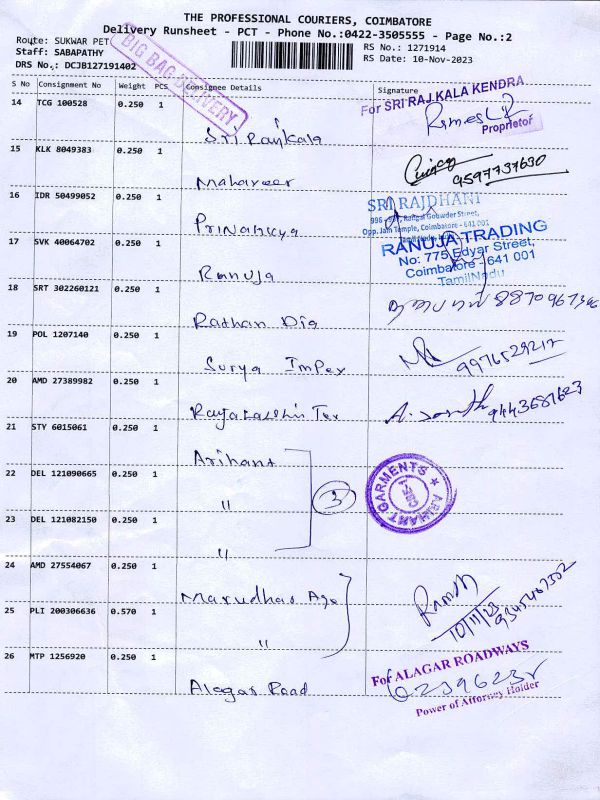 THE PROFESSIONAL COURIERS, COIMBATORE
Delivery Runsheet - PCT - Phone No.:0422-3505555 - Page No.:2
Route: SUKWAR PET
RS No.: 1271914
Staff: SABAPATHY
RS Date: 10-Nov-2023
DRS No.: DCJB127191402
BIG BAG DELIVERY
S No Consignment No Weight PCS Consignee Details Signature
14 TCG 100528 0.250 1 Sri Rajkala
For SRI RAJ KALA KENDRA
Proprietor
15 KLK 8049383 0.250 1 Mahaveer
9597737630
16 IDR 50499052 0.250 1 Priyankya
SRI RAJDHANI
Opp. Jain Temple, Coimbatore - 641 001
17 SVK 40064702 0.250 1 Ranuja
RANUJA TRADING
No: 775, Edyar Street,
Coimbatore - 641 001
TamilNadu
18 SRT 302260121 0.250 1 Rathan Dia
19 POL 1207140 0.250 1 Surya Impex
20 AMD 27389982 0.250 1
21 STY 6015061 0.250 1 Arihant
22 DEL 121090665 0.250 1 "
3
ARIHANT GARMENTS
CBE-1
23 DEL 121082150 0.250 1 "
24 AMD 27554067 0.250 1 Marudhar Age
Ramesh
10/11/23
25 PLI 200306636 0.570 1 "
26 MTP 1256920 0.250 1 Alagar Road
For ALAGAR ROADWAYS
Power of Attorney Holder